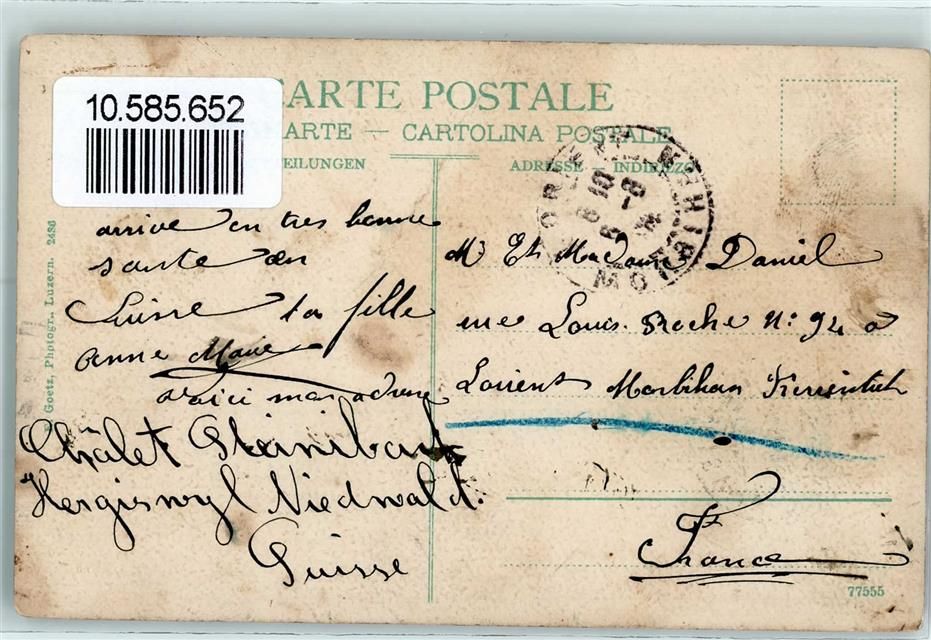 10.585.652
CARTE POSTALE
ARTE — CARTOLINA POSTALE
EILUNGEN
ADRESSE INDIRIZZO
Goetz, Photogr., Luzern. 2486
arrive en tres bonne
sante en
Suisse ta fille
Anne Marie
voici mon adresse
Châlet Steinibach
Hergiswyl Niedwald.
Suisse
MORBIHAN
Mr Et Madame Daniel
rue Louis Roche N: 94 a
Lorient Morbihan Kerentrech
France
77555